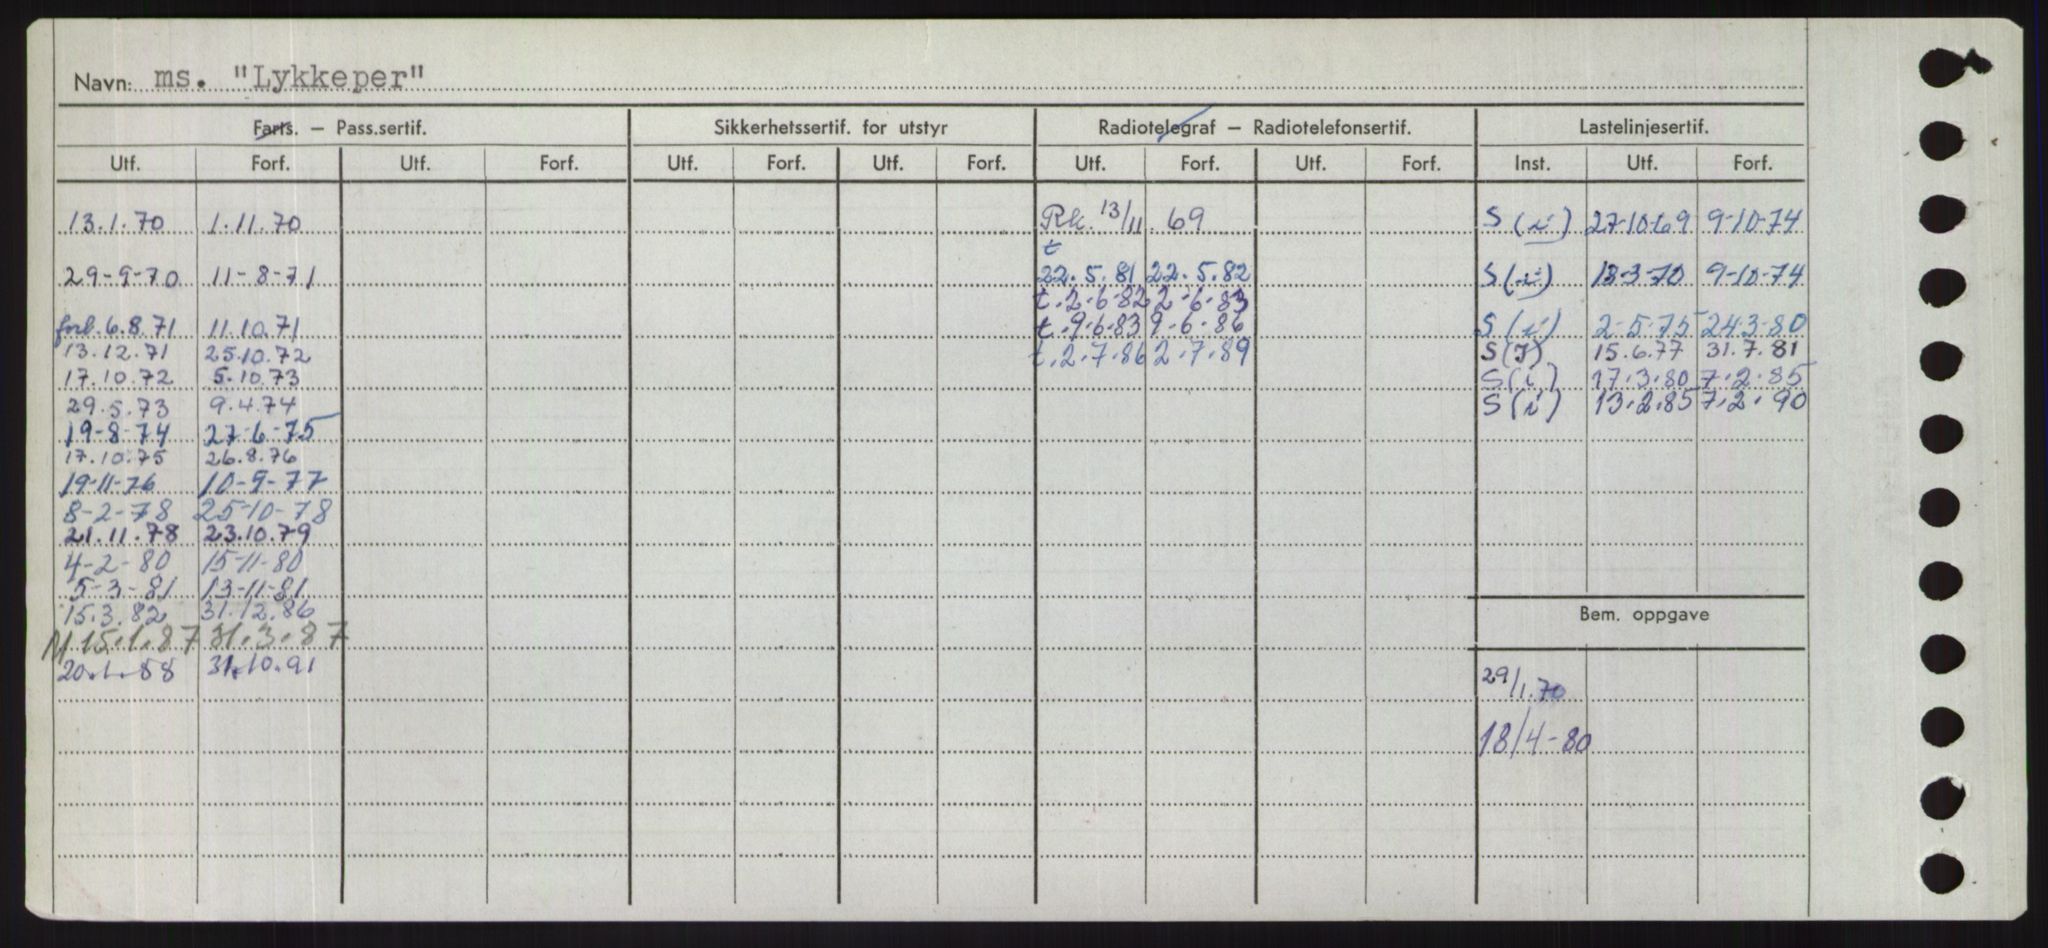 Navn: ms. "Lykkeper"
Farts. — Pass.sertif. Sikkerhetssertif. for utstyr Radiotelegraf — Radiotelefonsertif. Lastelinjesertif.
Utf. Forf. Utf. Forf. Utf. Forf. Utf. Forf. Utf. Forf. Utf. Forf. Inst. Utf. Forf.
13.1.70 1.11.70 Rk. 13/11.69 S (i) 27-10-69 9-10-74
t
29-9-70 11-8-71 22.5.81 22.5.82 S (i) 13-3-70 9-10-74
t.2.6.82 2.6.83
forl. 6.8.71 11.10.71 t.9.6.83 9.6.86 S (i) 2-5-75 24-3-80
13.12.71 25.10.72 t.2.7.86 2.7.89 S (I) 15.6.77 31.7.81
17.10.72 5.10.73 S (i) 17.3.80 7.2.85
29.5.73 9.4.74 S (i) 13.2.85 7.2.90
19-8-74 27-6-75
17.10.75 26.8.76
19-11-76 10-9-77
8-2-78 25-10-78
21.11.78 23.10.79
4-2-80 15-11-80
5-3-81 13-11-81
15.3.82 31.12.86
Bem. oppgave
M 15.1.87 31.3.87
20.1.88 31.10.91
29/1.70
18/4-80